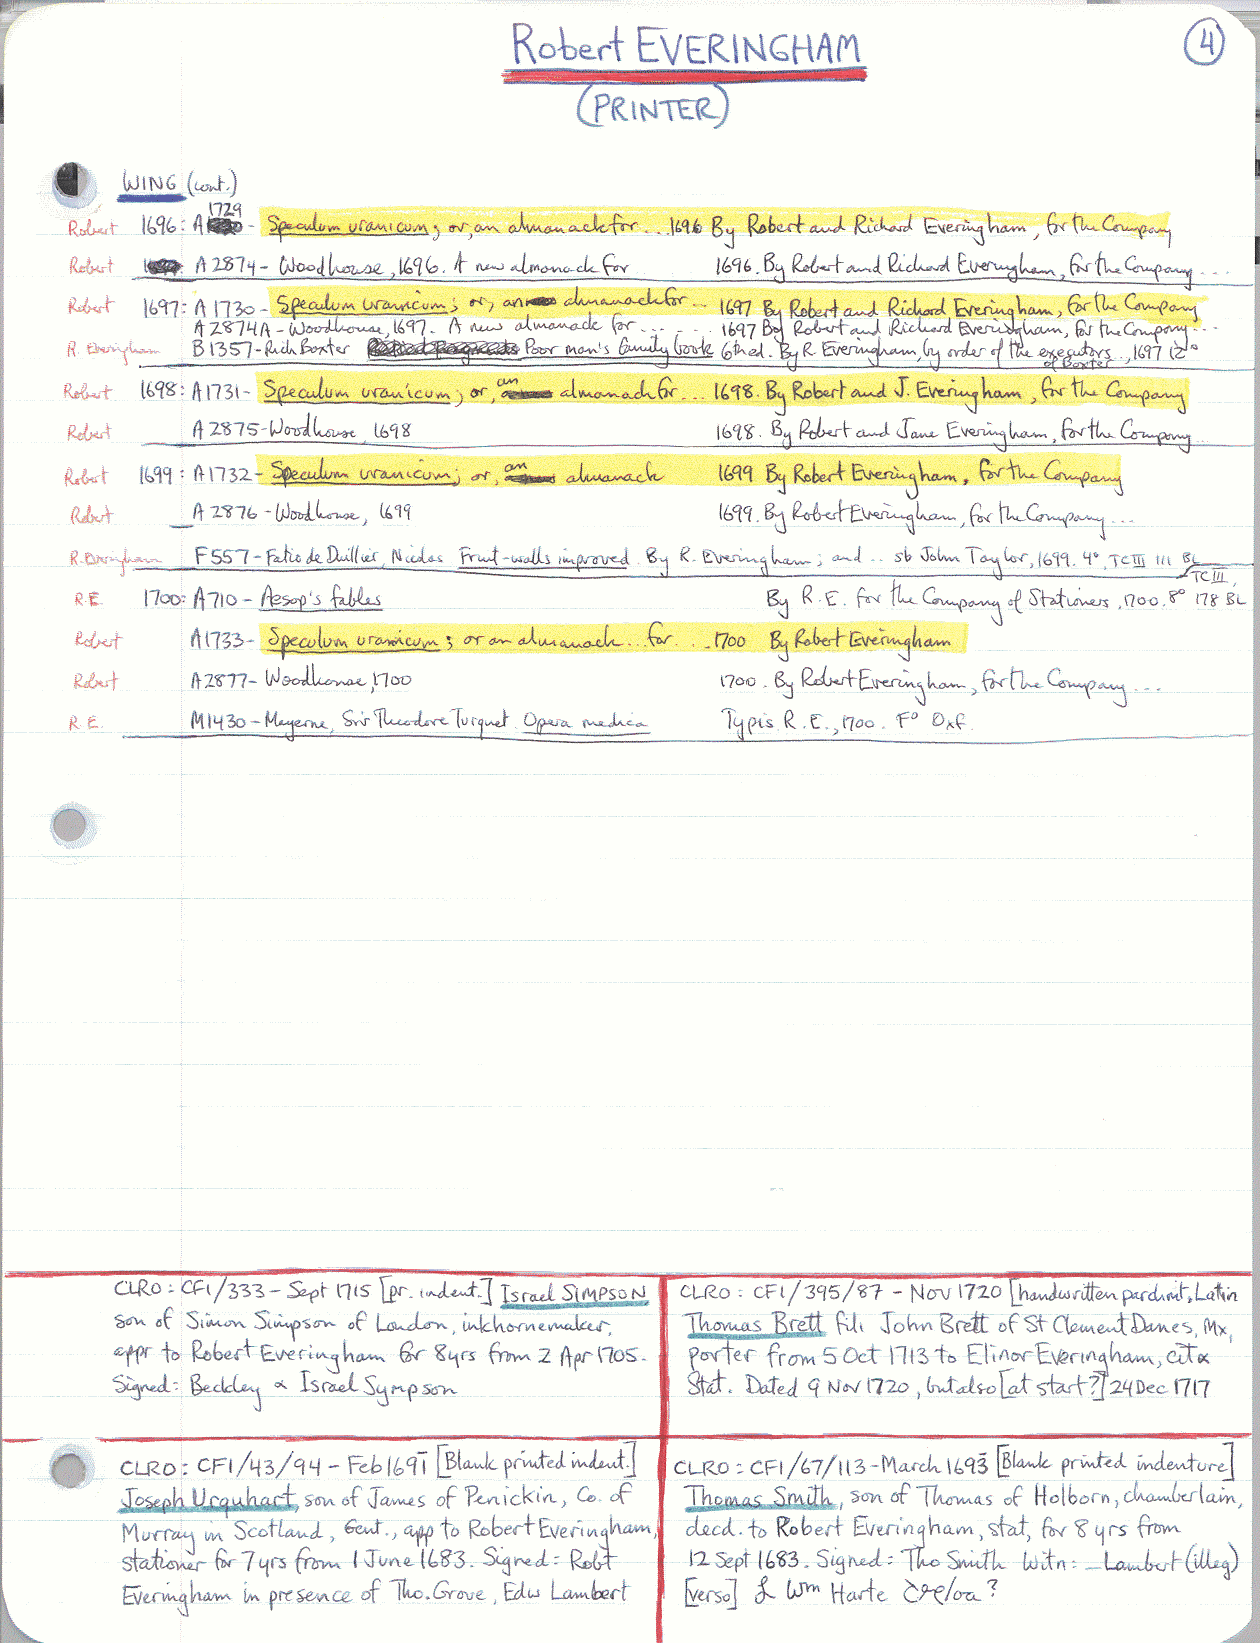 Robert EVERINGHAM
4
(PRINTER)
WING (cont.)
1729
Robert 1696: A - Speculum uranicum; or, an almanack for ... 1696 By Robert and Richard Everingham, for the Company
Robert : A 2874 - Woodhouse, 1696. A new almanack for 1696. By Robert and Richard Everingham, for the Company ...
Robert 1697: A 1730 - Speculum uranicum; or, an almanack for ... 1697 By Robert and Richard Everingham, for the Company
A 2874A - Woodhouse, 1697. A new almanack for ... ... 1697 By Robert and Richard Everingham, for the Company ...
R. Everingham B1357 - Rich Baxter Poor man's family book 6th ed. By R. Everingham, by order of the executors .., 1697 12°
of Baxter
Robert 1698: A1731 - Speculum uranicum; or, an almanack for ... 1698. By Robert and J. Everingham, for the Company
Robert A 2875 - Woodhouse, 1698 1698. By Robert and Jane Everingham, for the Company ...
Robert 1699: A1732 - Speculum uranicum; or, an almanack 1699 By Robert Everingham, for the Company
Robert A 2876 - Woodhouse, 1699 1699. By Robert Everingham, for the Company ...
R. Everingham F557 - Fatio de Duillier, Nicolas Fruit-walls improved. By R. Everingham; and .. sb John Taylor, 1699. 4°, TC III 111 BL
R.E. 1700: A710 - Aesop's fables By R.E. for the Company of Stationers, 1700. 8° TC III, 178 BL
Robert A1733 - Speculum uranicum; or an almanack ... for ... 1700 By Robert Everingham
Robert A2877 - Woodhouse, 1700 1700. By Robert Everingham, for the Company ...
R.E. M1430 - Mayerne, Sir Theodore Turquet. Opera medica Typis R.E., 1700. F° Oxf.
CLRO: CF1/333 - Sept 1715 [pr. indent.] Israel SIMPSON
son of Simon Simpson of London, inkhornemaker,
appr to Robert Everingham for 8yrs from 2 Apr 1705.
Signed: Beckley & Israel Sympson
CLRO: CF1/395/87 - Nov 1720 [handwritten parchmt, Latin
Thomas Brett fil. John Brett of St Clement Danes, Mx,
porter from 5 Oct 1713 to Elinor Everingham, cit &
Stat. Dated 9 Nov 1720, but also [at start?] 24 Dec 1717
CLRO: CF1/43/94 - Feb 1691 [Blank printed indent.]
Joseph Urquhart, son of James of Penickin, Co. of
Murray in Scotland, Gent., app to Robert Everingham,
stationer for 7yrs from 1 June 1683. Signed: Robt
Everingham in presence of Tho. Grove, Edw Lambert
CLRO: CF1/67/113 - March 1693 [Blank printed indenture]
Thomas Smith, son of Thomas of Holborn, chamberlain,
decd. to Robert Everingham, stat, for 8 yrs from
12 Sept 1683. Signed: Tho Smith Witn: _ Lambert (illeg)
[verso] & Wm Harte